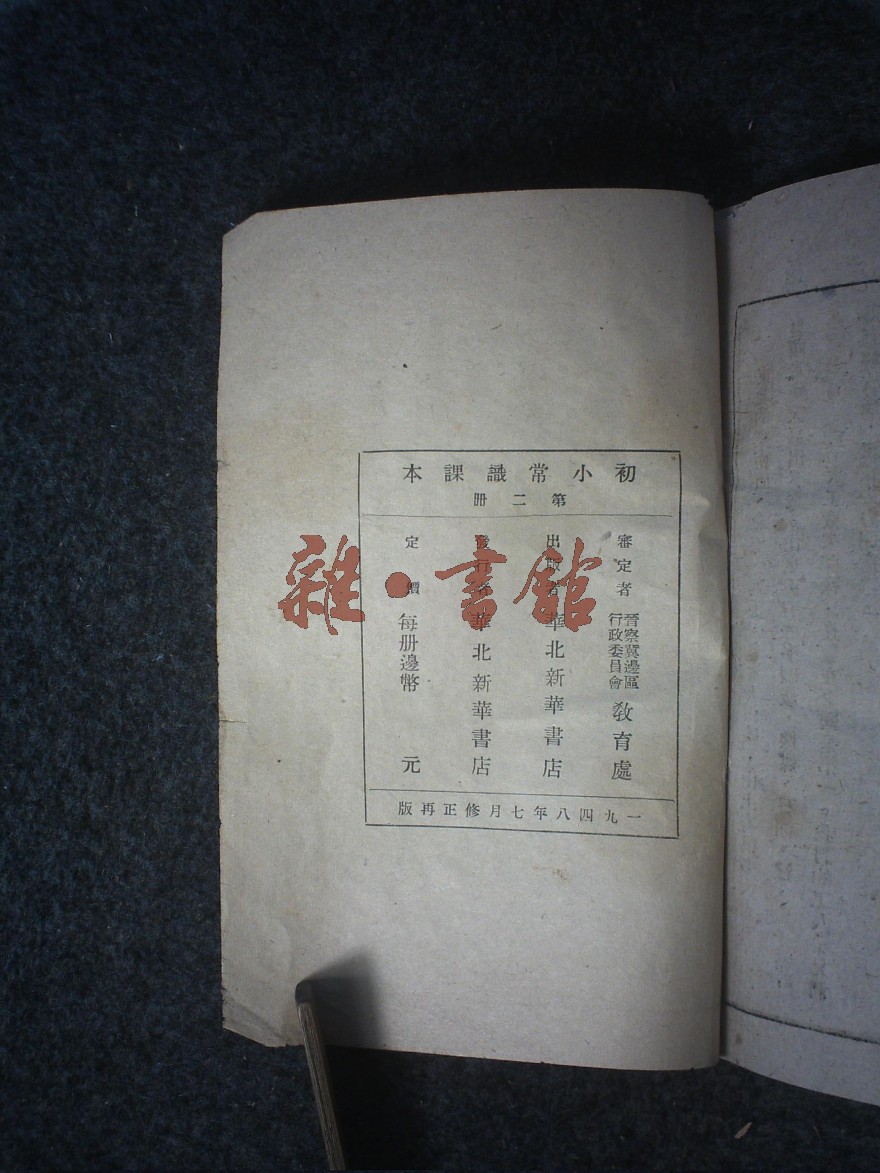 初小常識課本
第二冊
審定者 晉察冀邊區行政委員會 教育處
出版者 華北新華書店
發行者 華北新華書店
定價 每册邊幣 元
一九四八年七月修正再版
雜·書館